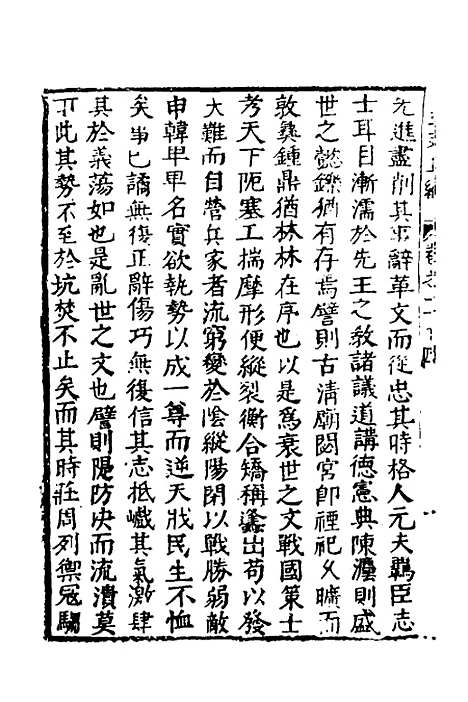 先進盡削其事辭華文而從忠其時格人元夫羈臣志
士耳目漸濡於先王之教諸議道講德憲典陳灋則盛
世之懿鑠猶有存焉譬則古清廟閟宮即禋祀久曠而
敦彝鍾鼎猶林林在序也以是爲衰世之文戰國策士
考天下阨塞工揣摩形便縱裂衡合矯稱蠭出苟以發
大難而自營兵家者流窮變於陰縱陽閉以戰勝弱敵
申韓卑卑名實欲執勢以成一尊而逆天戕民生不恤
矣事已譎無復正辭傷巧無復信其志抵巇其氣激肆
其於義蕩如也是亂世之文也譬則隄防决而流潰莫
可此其勢不至於坑焚不止矣而其時莊周列禦冦騶
卷之二十四